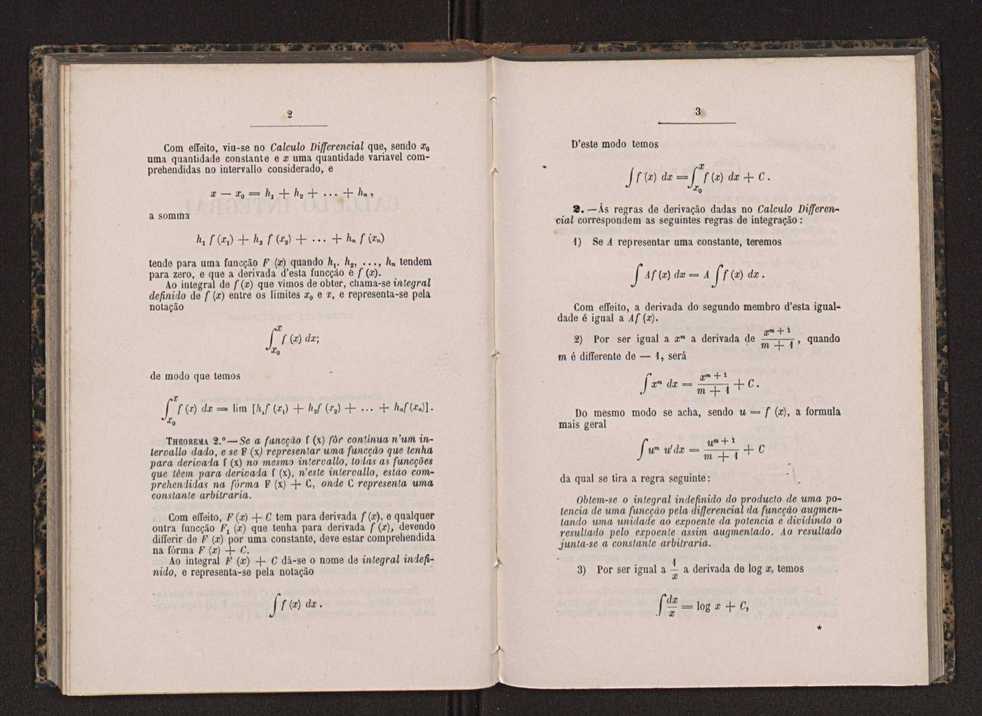 2
Com effeito, viu-se no Calculo Differencial que, sendo x₀
uma quantidade constante e x uma quantidade variavel com-
prehendidas no intervallo considerado, e
x — x₀ = h₁ + h₂ + ... + hₙ,
a somma
h₁ f (x₁) + h₂ f (x₂) + ... + hₙ f (xₙ)
tende para uma funcção F (x) quando h₁. h₂, ..., hₙ tendem
para zero, e que a derivada d'esta funcção é f (x).
Ao integral de f (x) que vimos de obter, chama-se integral
definido de f (x) entre os limites x₀ e x, e representa-se pela
notação
∫ₓ₀ˣ f (x) dx;
de modo que temos
∫ₓ₀ˣ f (x) dx = lim [h₁f (x₁) + h₂f (x₂) + ... + hₙf(xₙ)].
THEOREMA 2.º — Se a funcção f (x) fôr continua n'um in-
tervallo dado, e se F (x) representar uma funcção que tenha
para derivada f (x) no mesmo intervallo, todas as funcções
que têem para derivada f (x), n'este intervallo, estão com-
prehendidas na fórma F (x) + C, onde C representa uma
constante arbitraria.
Com effeito, F (x) + C tem para derivada f (x), e qualquer
outra funcção F₁ (x) que tenha para derivada f (x), devendo
differir de F (x) por uma constante, deve estar comprehendida
na fórma F (x) + C.
Ao integral F (x) + C dá-se o nome de integral indefi-
nido, e representa-se pela notação
∫ f (x) dx .
3
D'este modo temos
∫ f (x) dx = ∫ₓ₀ˣ f (x) dx + C .
2. — Ás regras de derivação dadas no Calculo Differen-
cial correspondem as seguintes regras de integração :
1) Se A representar uma constante, teremos
∫ Af (x) dx = A ∫ f (x) dx .
Com effeito, a derivada do segundo membro d'esta igual-
dade é igual a Af (x).
2) Por ser igual a xᵐ a derivada de xᵐ⁺¹/(m + 1), quando
m é differente de — 1, será
∫ xᵐ dx = xᵐ⁺¹/(m + 1) + C.
Do mesmo modo se acha, sendo u = f (x), a formula
mais geral
∫ uᵐ u'dx = uᵐ⁺¹/(m + 1) + C
da qual se tira a regra seguinte:
Obtem-se o integral indefinido do producto de uma po-
tencia de uma funcção pela differencial da funcção augmen-
tando uma unidade ao expoente da potencia e dividindo o
resultado pelo expoente assim augmentado. Ao resultado
junta-se a constante arbitraria.
3) Por ser igual a 1/x a derivada de log x, temos
∫ dx/x = log x + C,
*